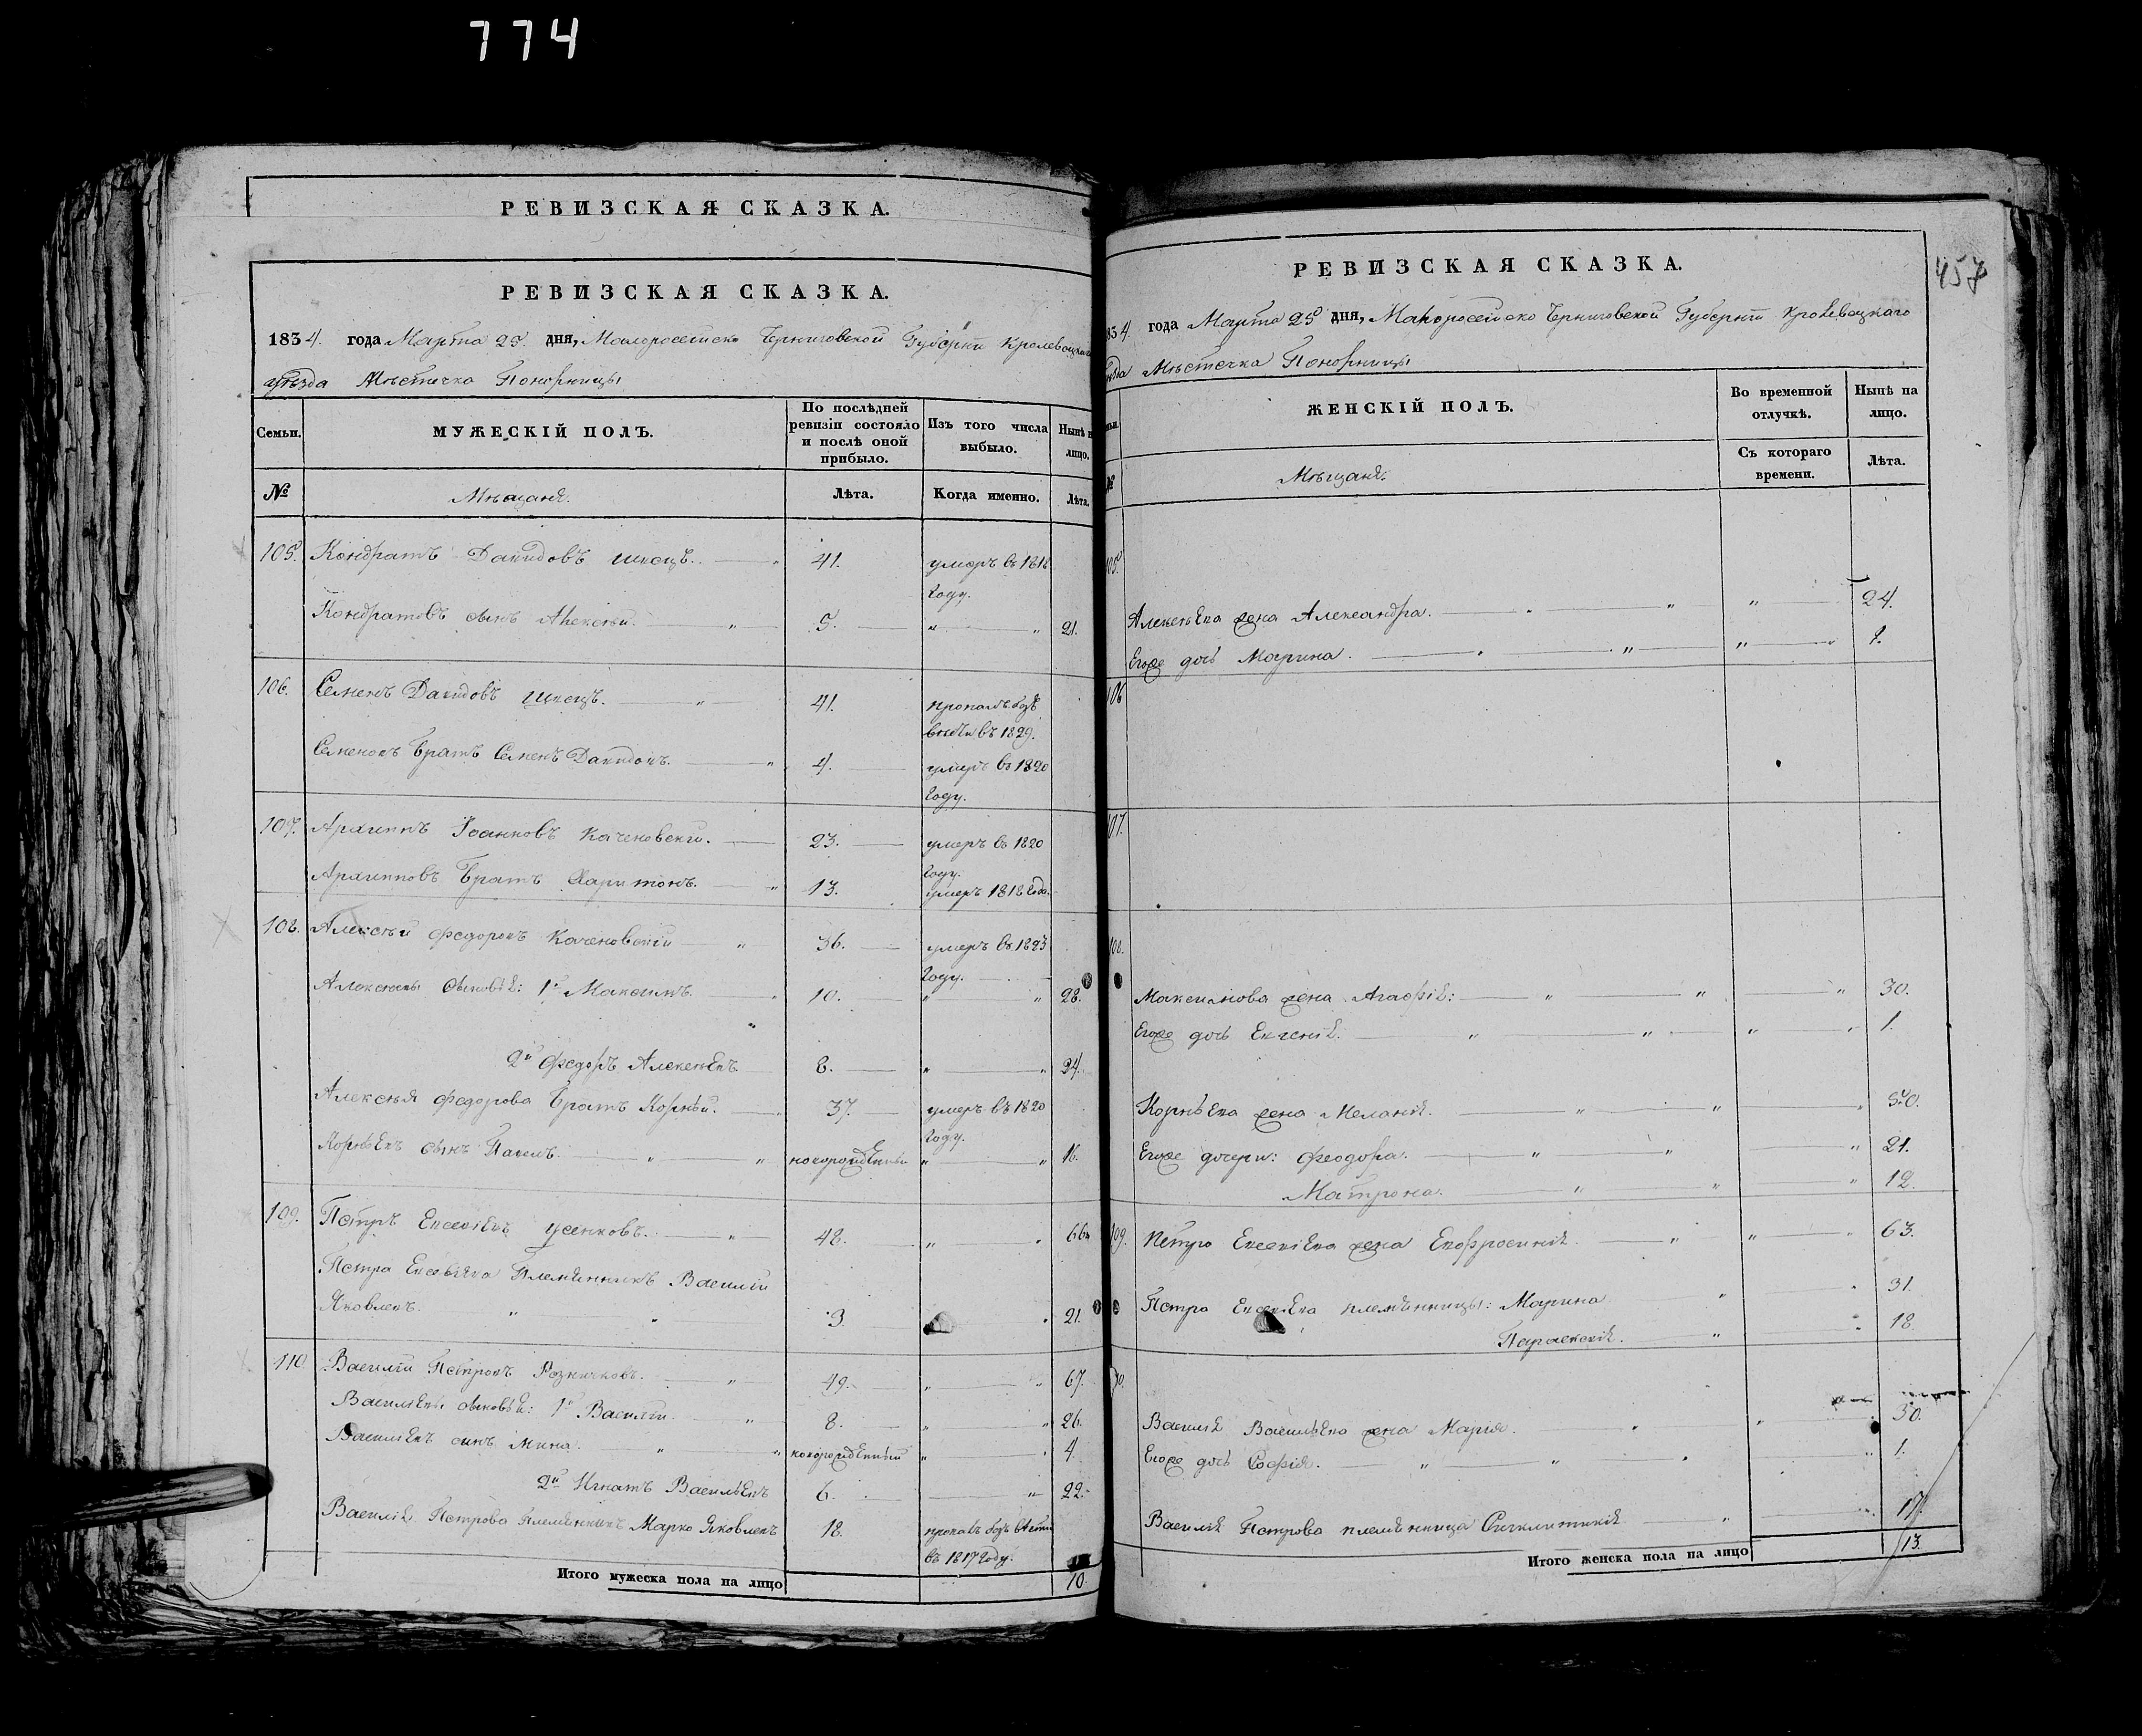 774
РЕВИЗСКАЯ СКАЗКА.
РЕВИЗСКАЯ СКАЗКА.
1834. года Марта 25. дня, Малоросейско Черниговской Губерни Кролевецкаго
уѣзда Мѣстечка Понорницы
Семьи.
МУЖЕСКІЙ ПОЛЪ.
По послѣдней ревизіи состояло и послѣ оной прибыло.
Изъ того числа выбыло.
Нынѣ н лицо.
№
Мѣщаня.
Лѣта.
Когда именно.
Лѣта.
105. Кондратъ Давидовъ Швецъ. 41. умеръ въ 1818
году.
Кондратовъ сынъ Алексѣй. 5. " " 21.
106. Семенъ Давидовъ Швецъ. 41. пропалъ безъ
вѣсти въ 1829.
Семеновъ братъ Семенъ Давидовъ. 4. умеръ въ 1820
году.
107. Архиппъ Іоанновъ Каченовский. 23. умеръ въ 1820
году.
Архипповъ братъ Харитонъ. 13. умеръ 1818 год.
108. Алексѣй Федоровъ Каченовскій 36. умеръ въ 1823
году.
Алексѣевы сыновья: 1й Максимъ. 10. " " 28.
2й Федоръ Алексѣевъ 8. " " 24.
Алексѣя Федорова братъ Корнѣй. 37. умеръ въ 1820
году.
Корнѣевъ сынъ Павелъ. новорожденный " " 16.
109. Петръ Евсевіевъ Усенковъ. 48. " " 66.
Петра Евсевіева племянникъ Василій
Яковлевъ. 3 " 21.
110. Василій Петровъ 49. " " 67.
Васильевы сыновья: 1й Василій. 8. " " 26.
Васильевъ сынъ Мина. новорожденный " " 4.
2й Игнатъ Васильевъ 6. " 22.
Василія Петрова племянникъ Марко Яковлевъ 18. пропалъ безъ вѣсти
въ 1817 году.
Итого мужеска пола на лицо 10.
457
РЕВИЗСКАЯ СКАЗКА.
834. года Марта 25 дня, Малоросейско Черниговской Губерніи Кролевецкаго
Мѣстечка Понорницы
ЖЕНСКІЙ ПОЛЪ.
Во временной отлучкѣ.
Нынѣ на лицо.
№
Мѣщаня.
Съ котораго времени.
Лѣта.
105.
Алексѣева жена Александра. " " " 24.
Егоже дочь Марина. " " " " 1.
106
107.
108.
Максимова жена Агафія: " " " 30.
Егоже дочь Евгенія. " " " " 1.
Корнѣева жена Меланія. " " " 50.
Егоже дочери: Феодора. " " " 21.
Матрона. " " " 12.
109. Петра Евсевіева жена Евфросинія. " " " 63.
Петра Евсевіева племянницы: Марина " " 31.
Параскевія. " " 18.
110.
Василія Васильева жена Марія. " " " 30.
Егоже дочь Софія. " " " " 1.
Василія Петрова племянница Синклитикія " " 17.
Итого женска пола на лицо 13.